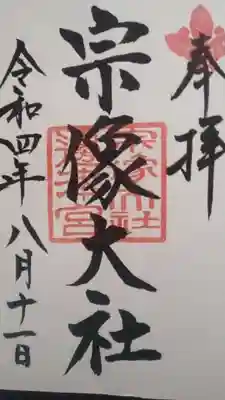 奉拝
宗像大社
令和四年八月十一日
宗像大社
邊津宮